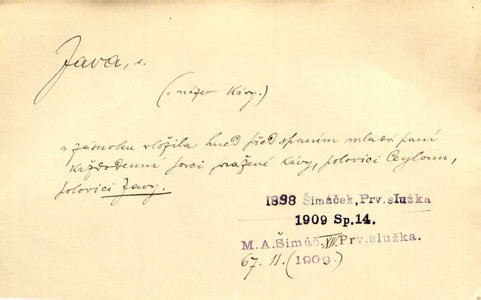 Java, s.
(o názvu kávy.)
v zásuvku vložila hned před spaním mladá paní
každodenní porci pražené kávy, polovici Ceylonu,
polovici Javy.
1898 Šimáček, Prv. služka
1909 Sp. 14.
M.A. Šimáč. XIV. Prv. služka.
67. 11. (1909.)